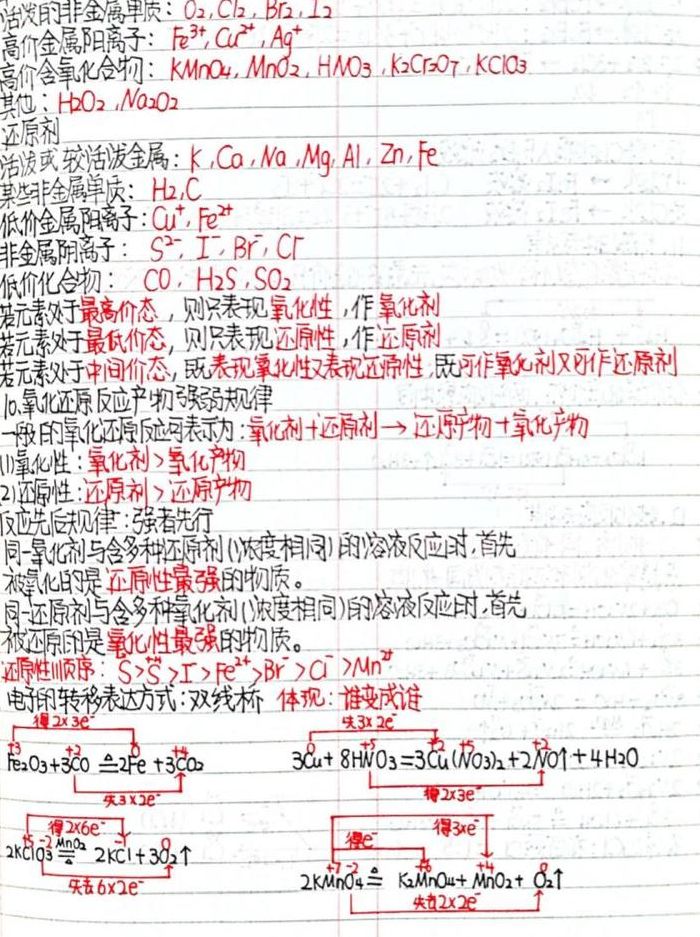 活泼的非金属单质：O₂，Cl₂，Br₂，I₂
高价金属阳离子：Fe³⁺，Cu²⁺，Ag⁺
高价含氧化合物：KMnO₄，MnO₂，HNO₃，K₂Cr₂O₇，KClO₃
其他：H₂O₂，Na₂O₂
还原剂
活泼或较活泼金属：K，Ca，Na，Mg，Al，Zn，Fe
某些非金属单质：H₂，C
低价金属阳离子：Cu⁺，Fe²⁺
非金属阴离子：S²⁻，I⁻，Br⁻，Cl⁻
低价化合物：CO，H₂S，SO₂
若元素处于最高价态，则只表现氧化性，作氧化剂
若元素处于最低价态，则只表现还原性，作还原剂
若元素处于中间价态，既表现氧化性又表现还原性，既可作氧化剂又可作还原剂
10.氧化还原反应产物强弱规律
一般的氧化还原反应可表示为：氧化剂+还原剂→还原产物+氧化产物
(1)氧化性：氧化剂>氧化产物
(2)还原性：还原剂>还原产物
反应先后规律：强者先行
同一氧化剂与含多种还原剂(浓度相同)的溶液反应时，首先
被氧化的是还原性最强的物质。
同一还原剂与含多种氧化剂(浓度相同)的溶液反应时，首先
被还原的是氧化性最强的物质。
电子的转移表达方式：双线桥 体现：谁变成谁
得2×3e⁻ 失3×2e⁻
+3 +2 0 +4 0 +5 +2 +5 +2
Fe₂O₃+3CO≜2Fe+3CO₂ 3Cu+8HNO₃=3Cu(NO₃)₂+2NO↑+4H₂O
失3×2e⁻ 得2×3e⁻
得2×6e⁻ 得e⁻ 得3×e⁻
+5 -2 MnO₂ -1 0
2KClO₃≜2KCl+3O₂↑
失去6×2e⁻
+7 -2 +6 +4 0
2KMnO₄≜K₂MnO₄+MnO₂+O₂↑
失去2×2e⁻